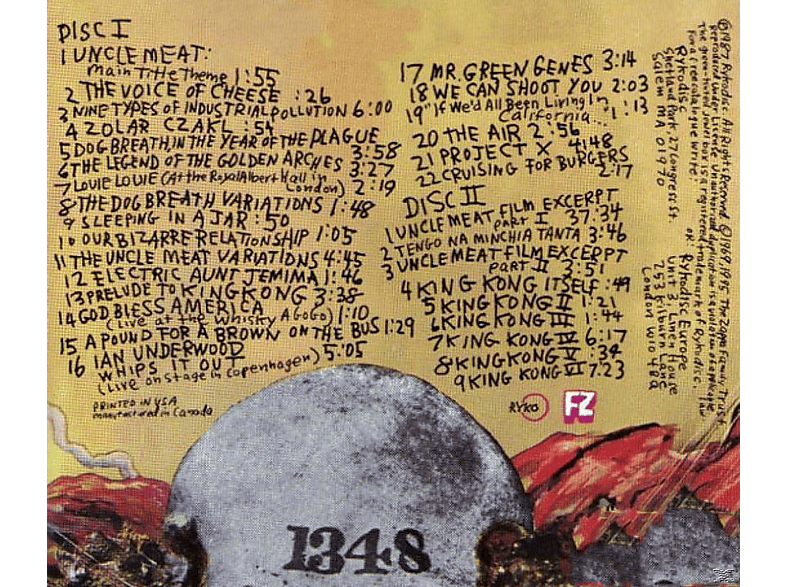 DISC I
1 UNCLE MEAT:
Main Title Theme 1:55
2 THE VOICE OF CHEESE :26
3 NINE TYPES OF INDUSTRIAL POLLUTION 6:00
4 ZOLAR CZAKL :54
5 DOG BREATH, IN THE YEAR OF THE PLAGUE 3:58
6 THE LEGEND OF THE GOLDEN ARCHES 3:27
7 LOUIE LOUIE (At the Royal Albert Hall in
London) 2:19
8 THE DOG BREATH VARIATIONS 1:48
9 SLEEPING IN A JAR :50
10 OUR BIZARRE RELATIONSHIP 1:05
11 THE UNCLE MEAT VARIATIONS 4:45
12 ELECTRIC AUNT JEMIMA 1:46
13 PRELUDE TO KING KONG 3:38
14 GOD BLESS AMERICA
(Live at the Whisky A GoGo) 1:10
15 A POUND FOR A BROWN ON THE BUS 1:29
16 IAN UNDERWOOD
WHIPS IT OUT
(Live on stage in Copenhagen) 5:05
PRINTED IN USA
manufactured in Canada
17 MR. GREEN GENES 3:14
18 WE CAN SHOOT YOU 2:03
19 "If We'd All Been Living In
California... 1:13
20 THE AIR 2:56
21 PROJECT X 4:48
22 CRUISING FOR BURGERS
2:17
DISC II
1 UNCLE MEAT FILM EXCERPT
PART I 37:34
2 TENGO NA MINCHIA TANTA 3:46
3 UNCLE MEAT FILM EXCERPT
PART II 3:51
4 KING KONG ITSELF :49
5 KING KONG II 1:21
6 KING KONG III 1:44
7 KING KONG IV 6:17
8 KING KONG V :34
9 KING KONG VI 7:23
RYKO
FZ
℗1987 Rykodisc. All Rights Reserved. ©1969, 1995 The Zappa Family Trust
Reproduced Under License. Unauthorized duplication is a violation of applicable law
The green-tinted jewel box is a registered trademark of Rykodisc.
For a free catalogue write: or:
Rykodisc
Shetland Park, 27 Congress St.
Salem MA 01970
Rykodisc Europe
Unit 3, Linen House
253 Kilburn Lane
London W10 4BQ
1348